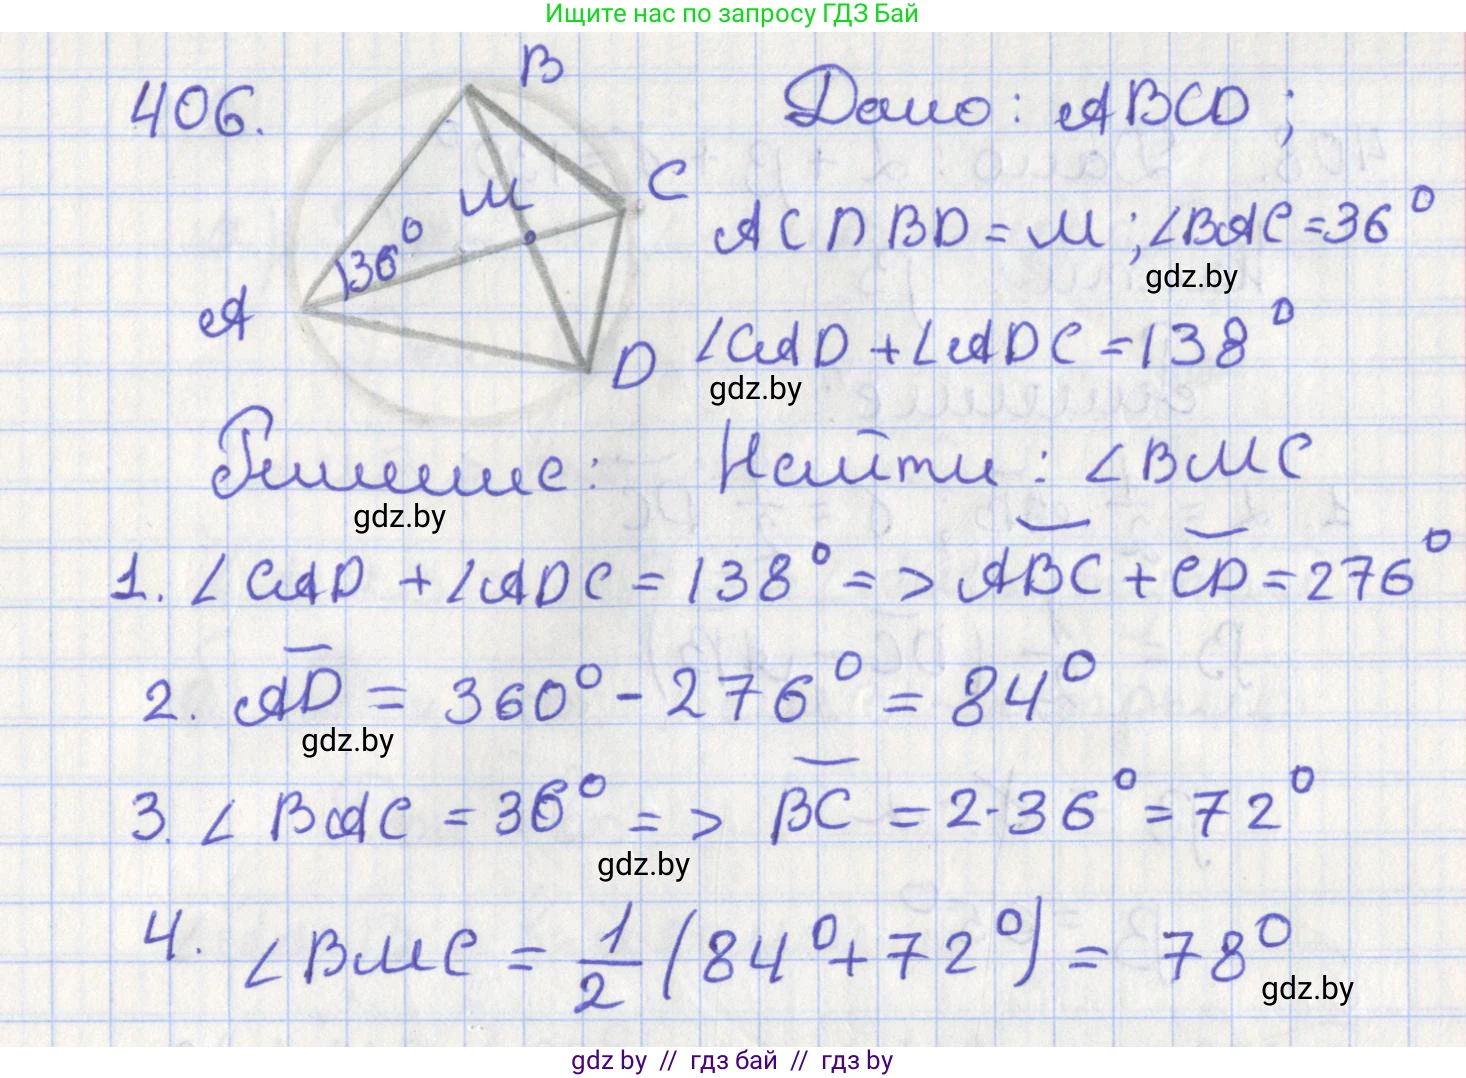 Ищите нас по запросу ГДЗ Бай
406.
B
M
C
36°
A
D
Дано: ABCD;
AC ∩ BD = M; ∠BAC = 36°
gdz.by
∠CAD + ∠ADC = 138°
gdz.by
Решение:
Найти: ∠BMC
gdz.by
1. ∠CAD + ∠ADC = 138° => ABC + CD = 276°
2. AD = 360° - 276° = 84°
gdz.by
3. ∠BAC = 36° => BC = 2·36° = 72°
gdz.by
4. ∠BMC = 1/2 (84° + 72°) = 78°
gdz.by
gdz by // гдз бай // гдз by